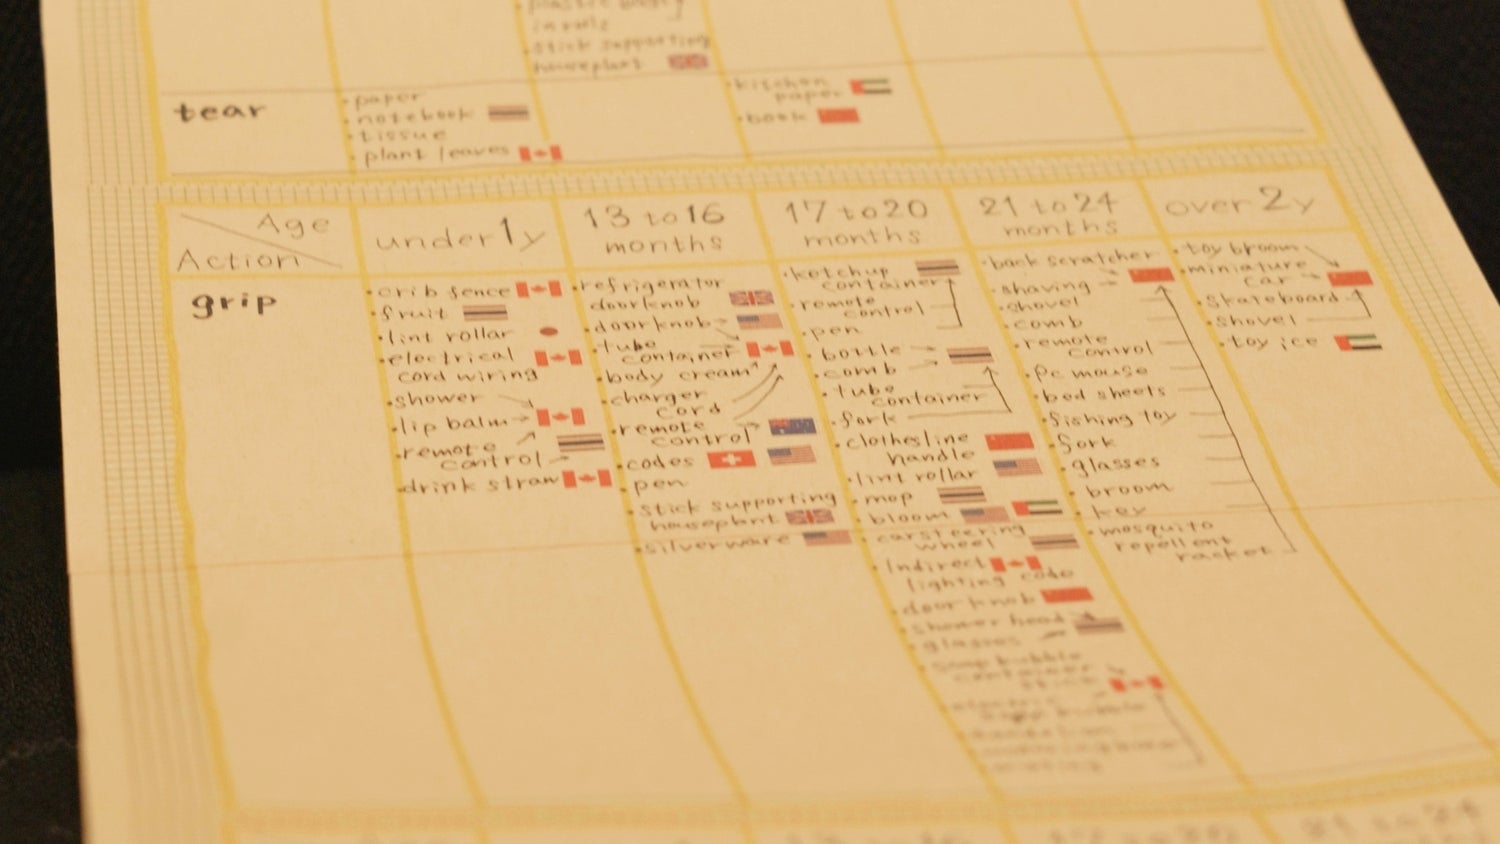 in role
• stick supporting
houseplant
tear
• paper
• notebook
• tissue
• plant leaves
• kitchen
paper
• book
Age
Action
under 1y
13 to 16
months
17 to 20
months
21 to 24
months
over 2y
grip
• crib fence
• fruit
• lint rollar
• electrical
cord wiring
• shower
• lip balm
• remote
control
• drink straw
• refrigerator
doorknob
• doorknob
• tube
container
• body cream
• charger
cord
• remote
control
• codes
• pen
• stick supporting
houseplant
• silverware
• ketchup
container
• remote
control
• pen
• bottle
• comb
• tube
container
• fork
• clothesline
handle
• lint rollar
• mop
• bloom
• car steering
wheel
• Indirect
lighting code
• door knob
• shower head
• glasses
• soap bubble
container
stick
• back scratcher
• shaving
• shovel
• comb
• remote
control
• pc mouse
• bed sheets
• fishing toy
• fork
• glasses
• broom
• key
• mosquito
repellent
racket
• toy broom
• miniature
car
• skateboard
• shovel
• toy ice
17 to 20
21 to 24